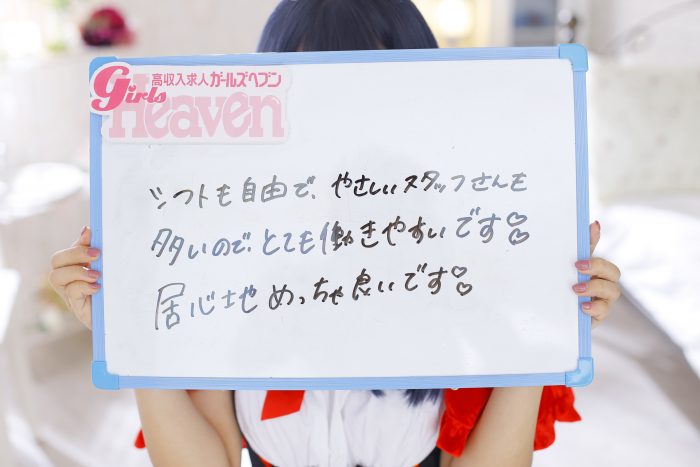 高収入求人ガールズヘブン
Girls Heaven
シフトも自由で、やさしいスタッフさんも
多いので、とても働きやすいです♡♡
居心地めっちゃ良いです♡♡